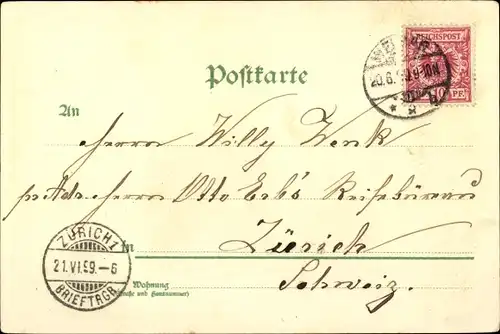 REICHSPOST
10 PF.
20.6.
Postkarte
An
Herrn Willy Wenk
pr Adr. Herrn Otto Erb's Reisebüreau
in Zürich
Schweiz.
ZÜRICH 1
21.VI.99.-6
BRIEFTRGR.
Wohnung
(Straße und Hausnummer)